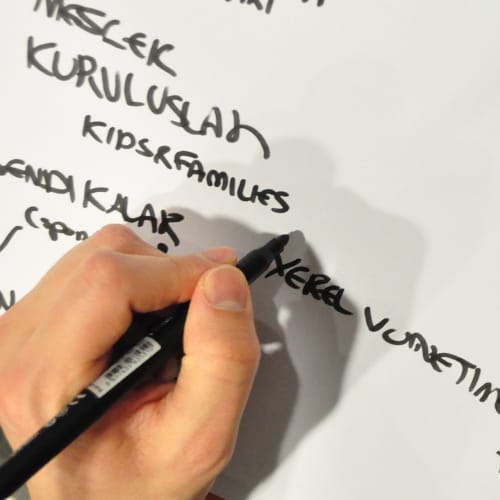 MESLEK
KURULUSLAR
KIDS&FAMILIES
SENDIKALAR
YEREL YONETIM